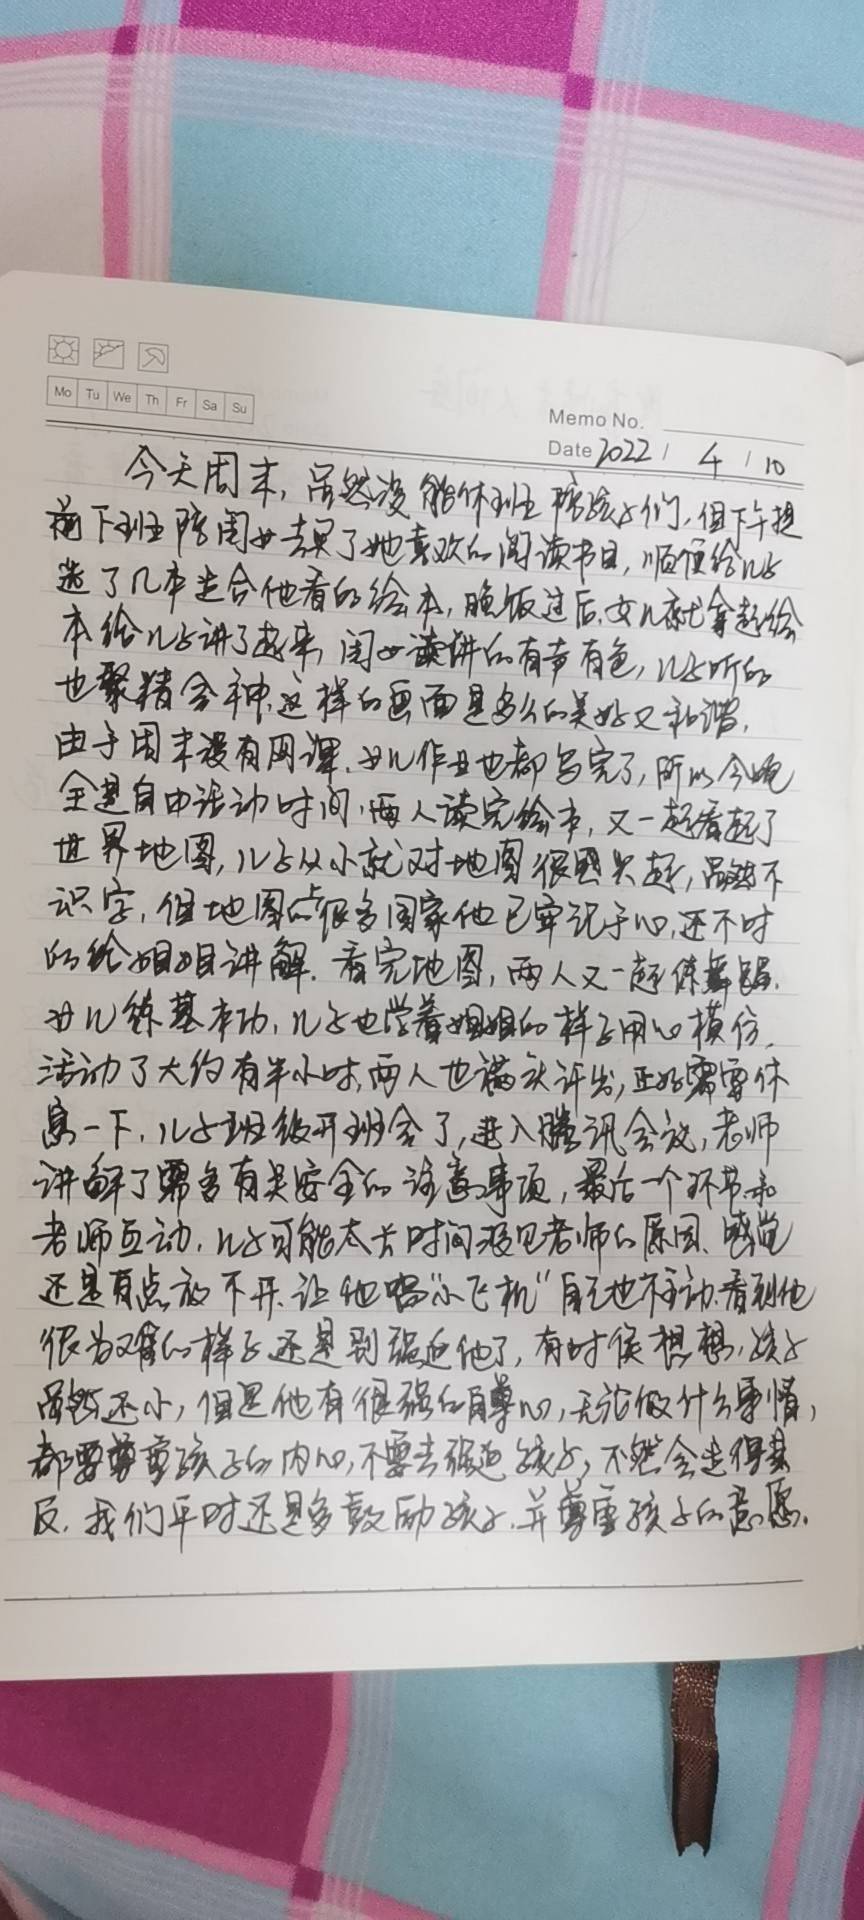 Mo Tu We Th Fr Sa Su
Memo No.
Date 2022 / 4 / 10
今天周末,虽然没能休班陪孩子们,但下午提
前下班陪闺女去买了她喜欢的阅读书目,顺便给儿子
选了几本适合他看的绘本,晚饭过后,女儿就拿起绘
本给儿子讲了起来,闺女读讲的有声有色,儿子听的
也聚精会神,这样的画面是多么的美好又和谐,
由于周末没有网课,女儿作业也都写完了,所以今晚
全是自由活动时间,两人读完绘本,又一起看起了
世界地图,儿子从小就对地图很感兴趣,虽然不
识字,但地图上很多国家他已牢记于心,还不时
的给姐姐讲解.看完地图,两人又一起练舞蹈.
女儿练基本功,儿子也学着姐姐的样子用心模仿.
活动了大约有半小时,两人也满头汗出,正好需要休
息一下,儿子班级开班会了,进入腾讯会议,老师
讲解了需多有关安全的注意事项,最后一个环节和
老师互动,儿子可能太长时间没见老师的原因、感觉
还是有点放不开.让他唱“小飞机”自己也不主动.看到他
很为难的样子还是别强迫他了,有时候想想,孩子
虽然还小,但是他有很强的自尊心,无论做什么事情,
都要尊重孩子的内心,不要去强迫孩子,不然会适得其
反.我们平时还是多鼓励孩子.并尊重孩子的意愿.